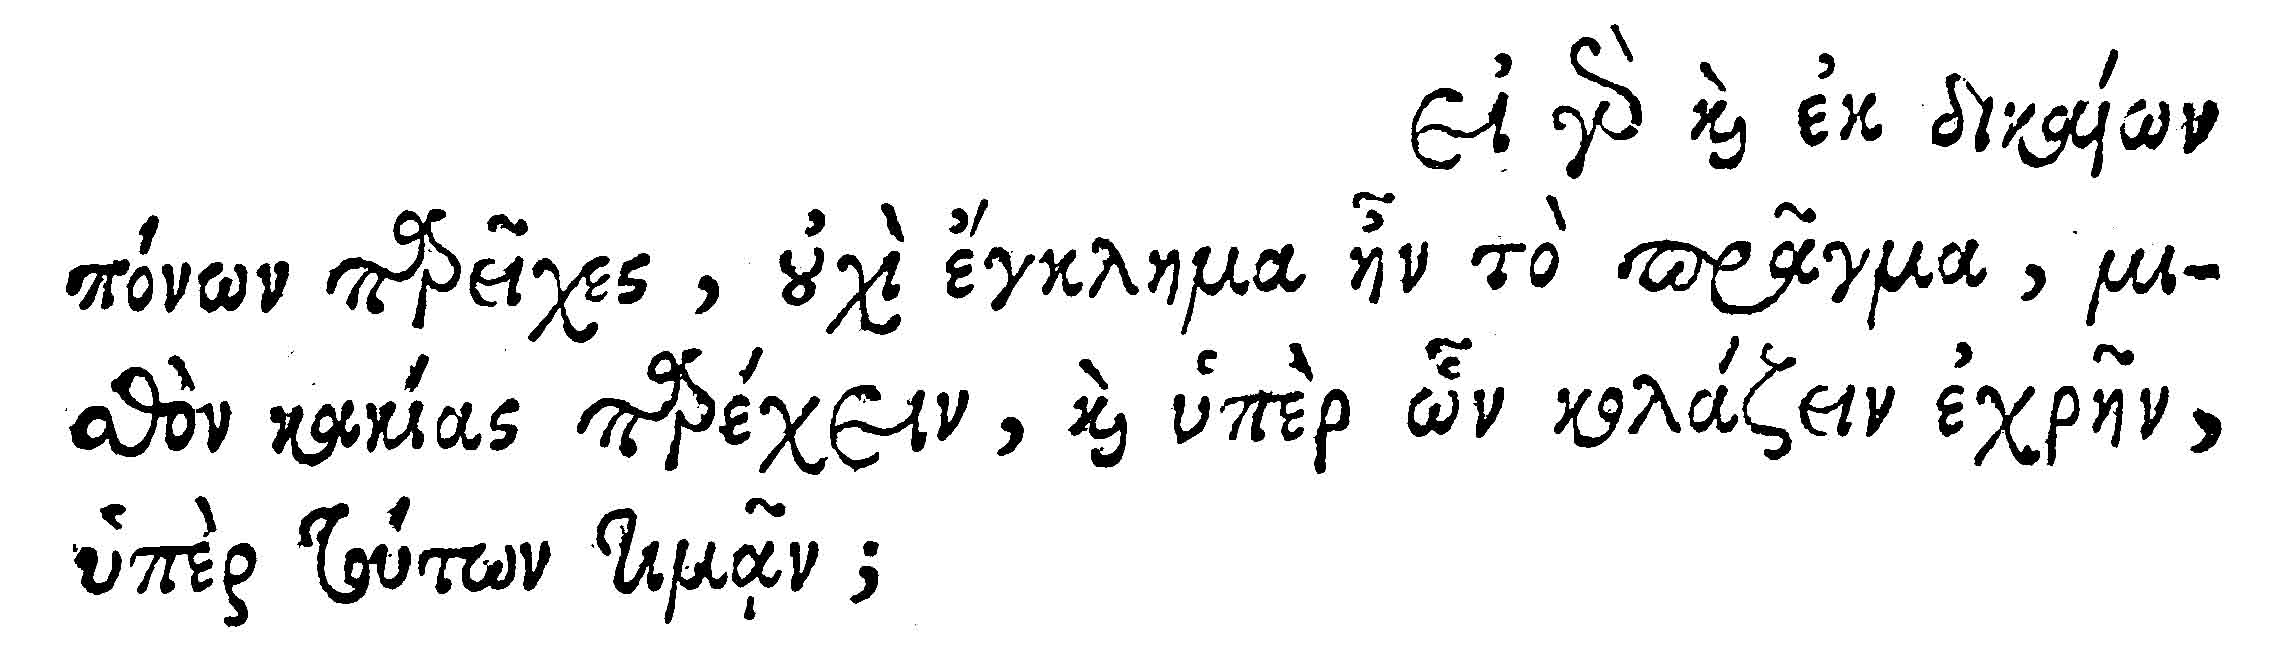 εἰ γὰρ καὶ ἐκ δικαίων
πόνων παρεῖχες, οὐχὶ ἔγκλημα ἦν τὸ πρᾶγμα, μι-
σθὸν κακίας παρέχειν, καὶ ὑπὲρ ὧν κολάζειν ἐχρῆν,
ὑπὲρ τούτων τιμᾷν;